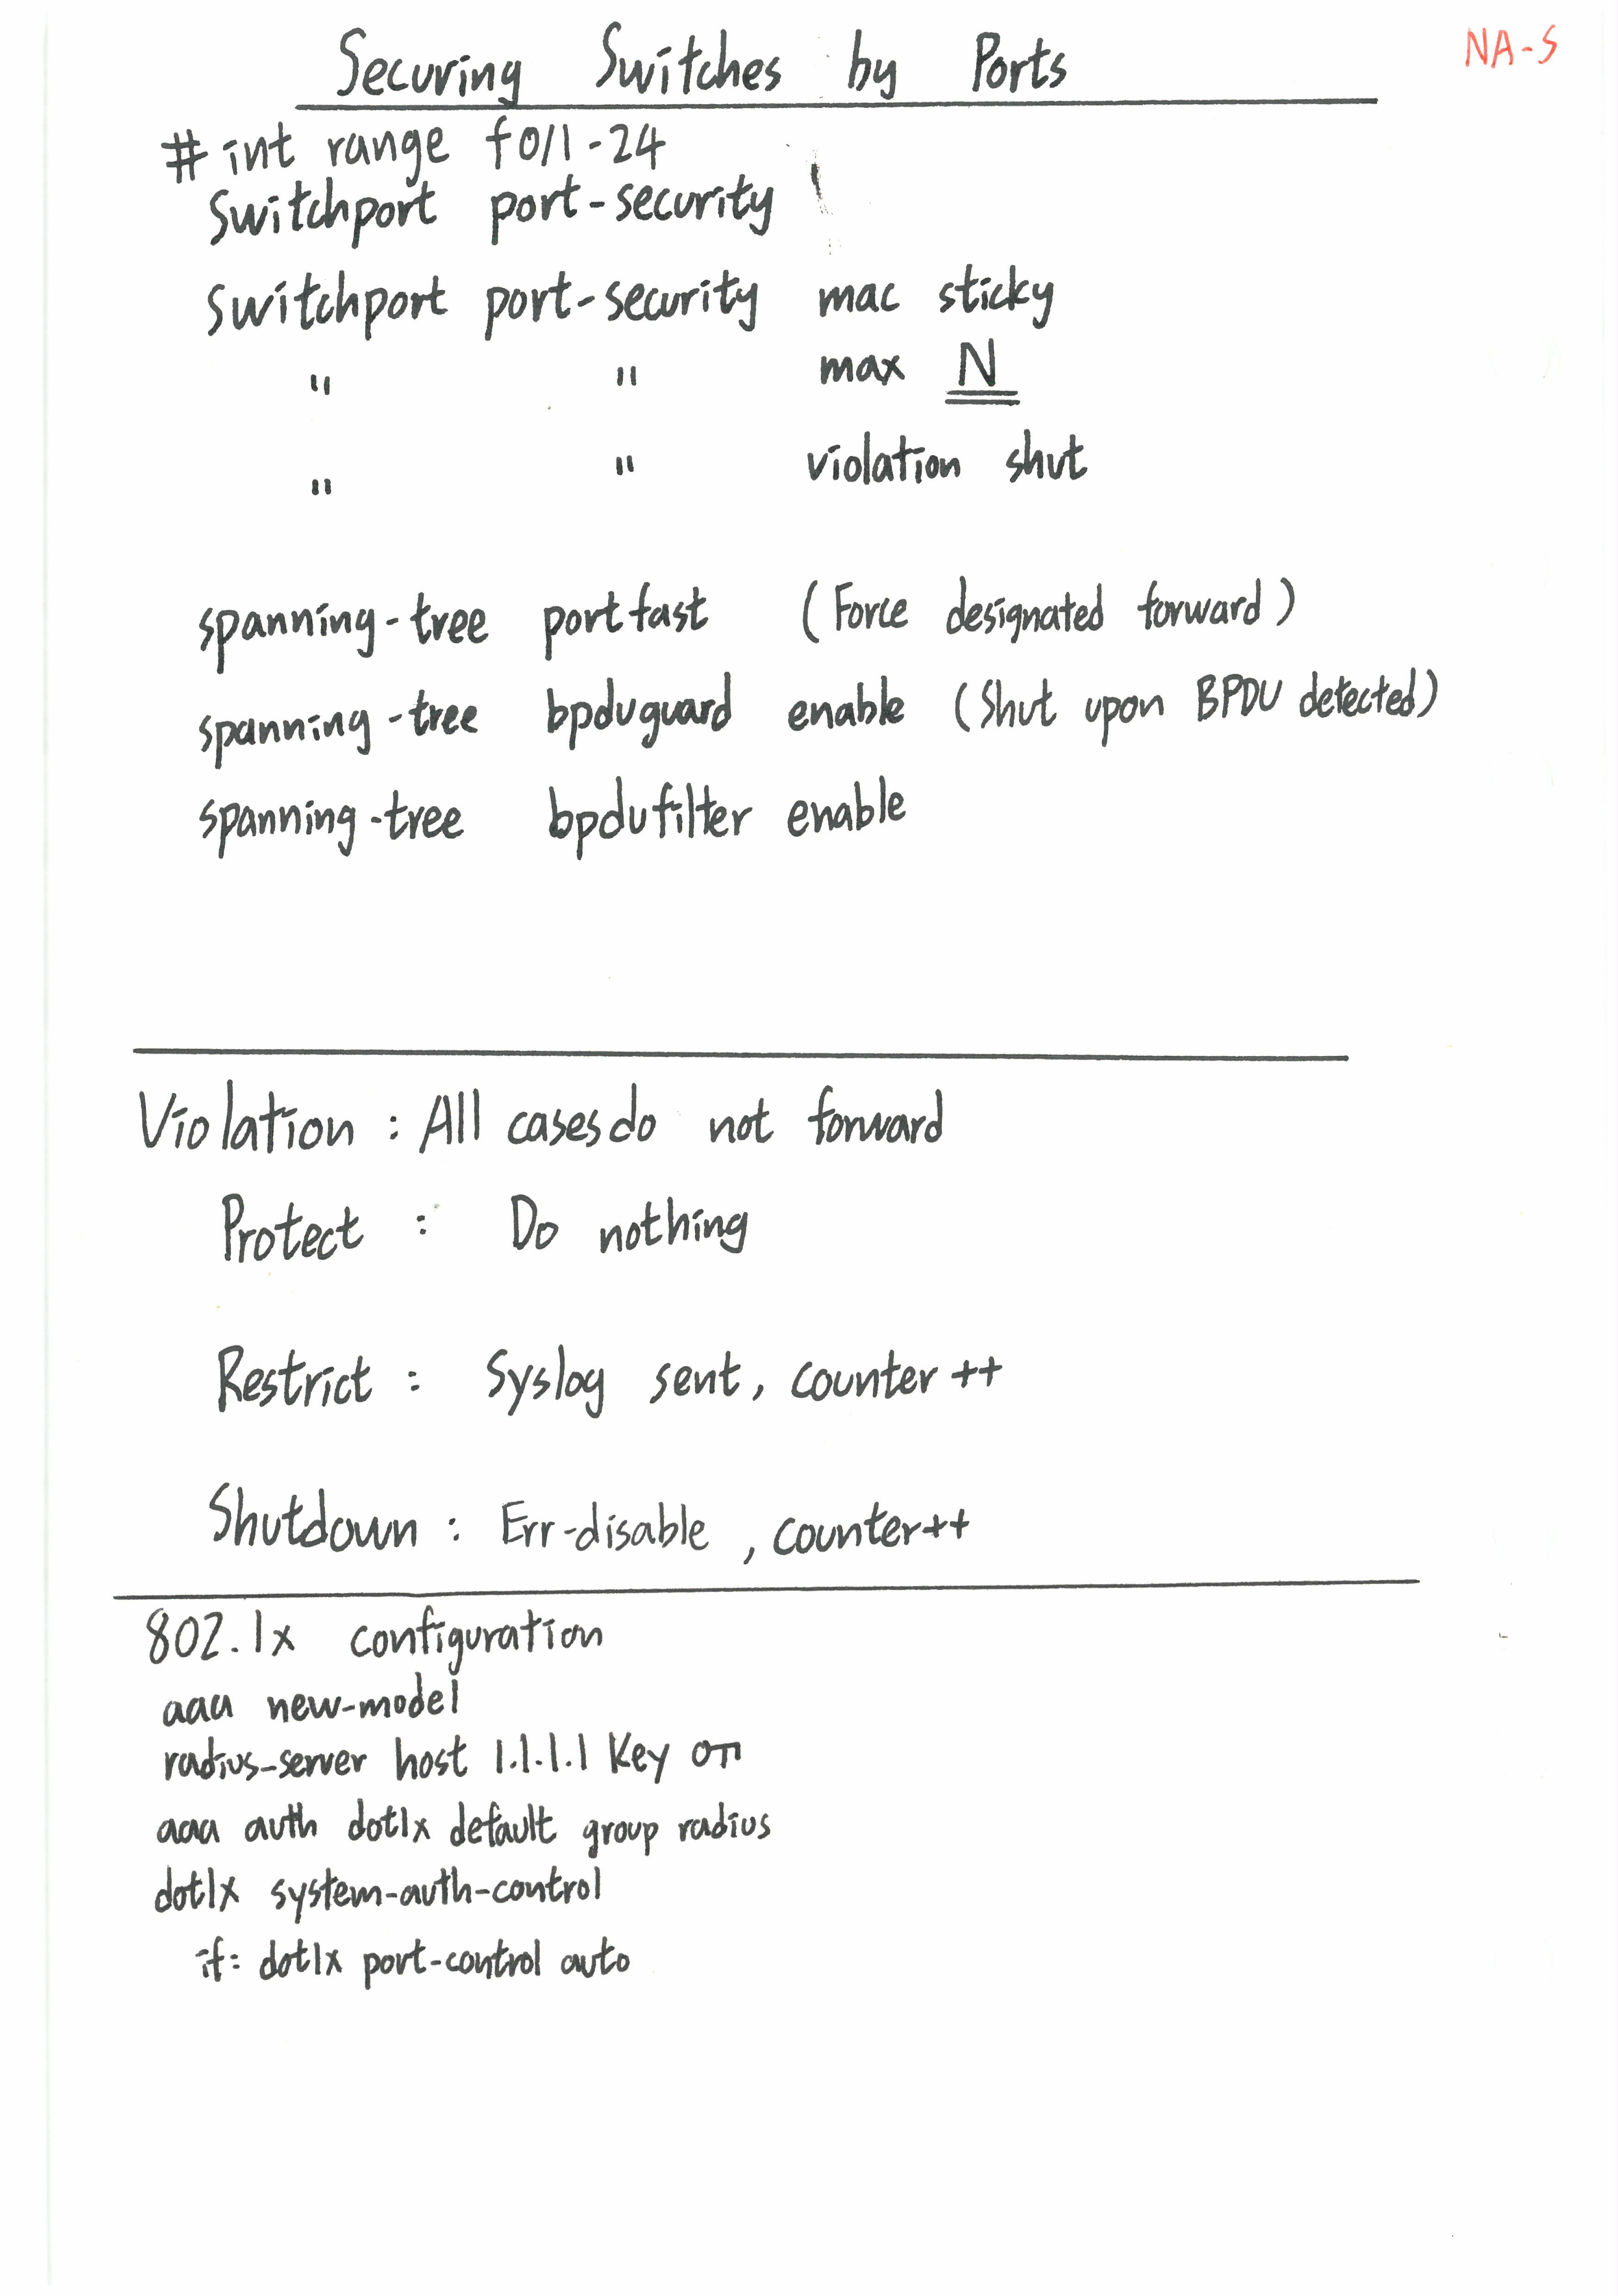 Securing Switches by Ports
NA-S
# int range f0/1-24
Switchport port-security
Switchport port-security mac sticky
" " max N
" " violation shut
spanning-tree portfast (Force designated forward)
spanning-tree bpduguard enable (Shut upon BPDU detected)
spanning-tree bpdufilter enable
Violation : All cases do not forward
Protect : Do nothing
Restrict : Syslog sent, counter ++
Shutdown : Err-disable , counter++
802.1x configuration
aaa new-model
radius-server host 1.1.1.1 Key
aaa auth dot1x default group radius
dot1x system-auth-control
if: dot1x port-control auto